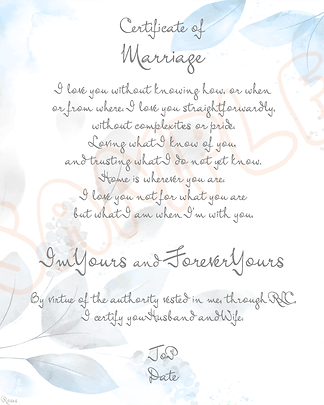 Certificate of
Marriage
I love you without knowing how, or when
or from where. I love you straightforwardly,
without complexites or pride.
Loving what I know of you,
and trusting what I do not yet know.
Home is wherever you are.
I love you not for what you are
but what I am when I'm with you.
ImYours and ForeverYours
By virtue of the authority vested in me, through RLC,
I certify youHusband andWife,
JoP
Date